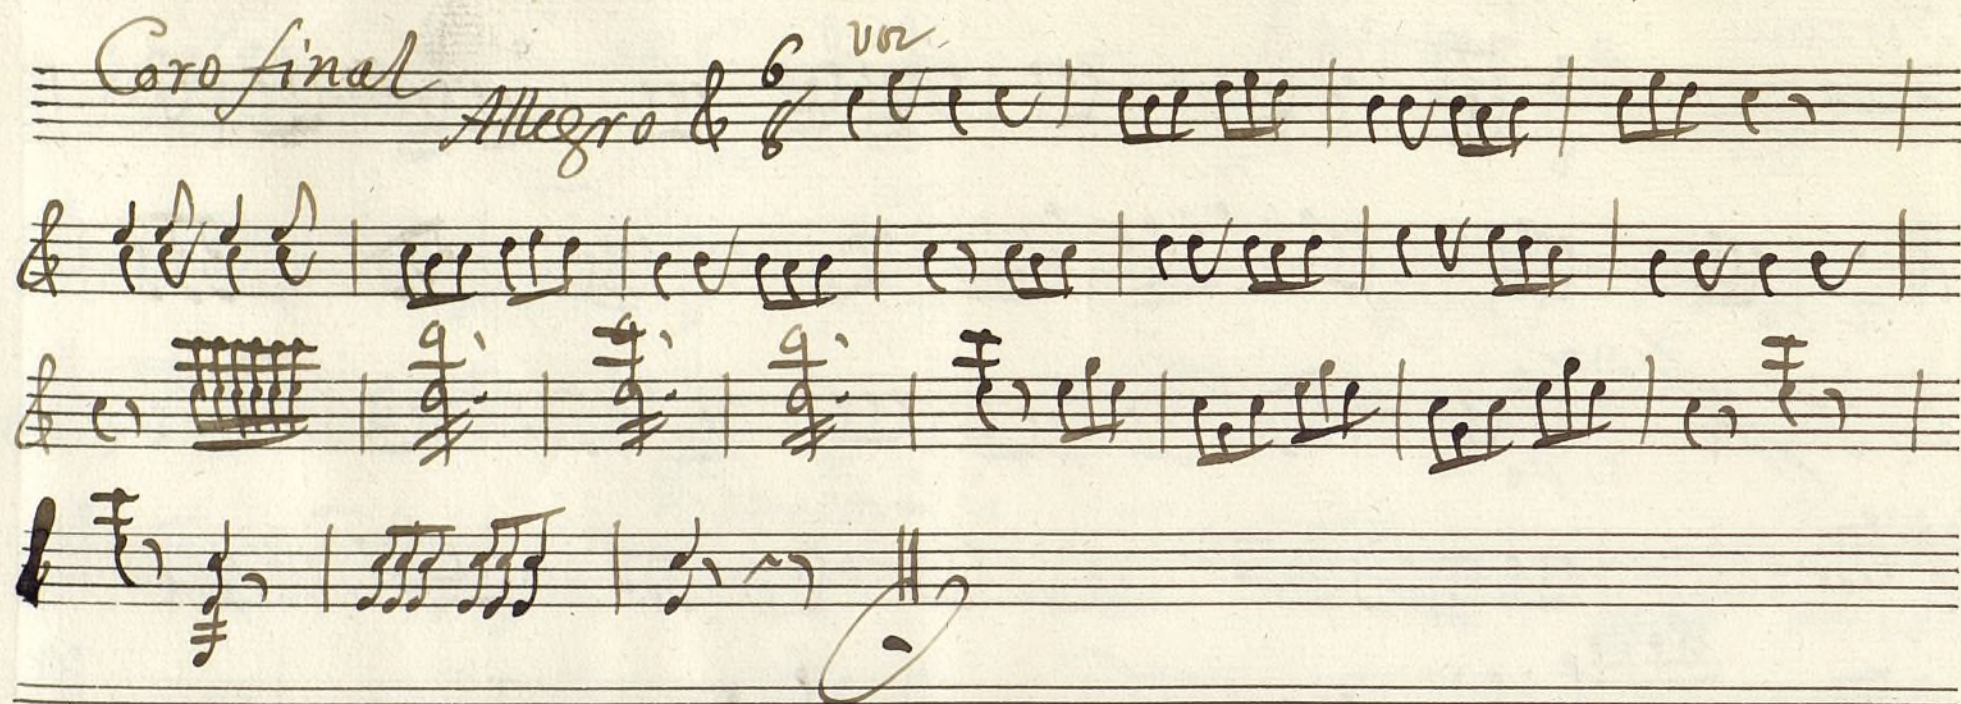 Coro final
Allegro 6 8 voz